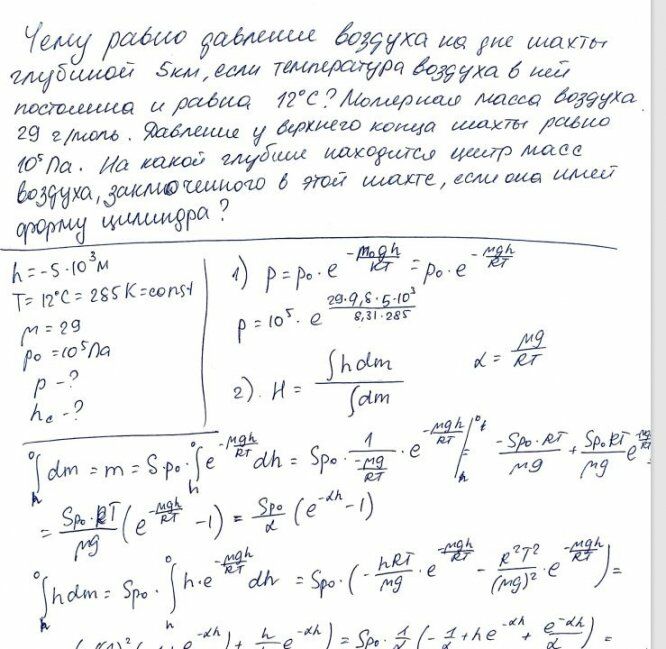 Чему равно давление воздуха на дне шахты
глубиной 5км, если температура воздуха в ней
постоянна и равна 12°C? Молярная масса воздуха
29 г/моль. Давление у верхнего конца шахты равно
10⁵Па. На какой глубине находится центр масс
воздуха, заключенного в этой шахте, если она имеет
форму цилиндра?
h = -5·10³м
T = 12°C = 285K = const
μ = 29
p₀ = 10⁵Па
p - ?
h_c - ?
1) p = p₀·e^(-m₀gh/RT) = p₀·e^(-μgh/RT)
p = 10⁵·e^(29·9,8·5·10³/8,31·285)
2). H = ∫hdm/∫dm α = μg/RT
∫_h^0 dm = m = S·p₀·∫_h^0 e^(-μgh/RT) dh = Sp₀·1/(-μg/RT)·e^(-μgh/RT)|_h^0 = -Sp₀·RT/μg + Sp₀RT/μg e
= Sp₀·RT/μg (e^(-μgh/RT) - 1) = Sp₀/α (e^(-αh) - 1)
∫_h^0 hdm = Sp₀·∫_h^0 h·e^(-μgh/RT) dh = Sp₀·(-hRT/μg·e^(-μgh/RT) - R²T²/(μg)²·e^(-μgh/RT)) =
e^(-αh)) = Sp₀·1/α(-1/α + he^(-αh) + e^(-αh)/α) =